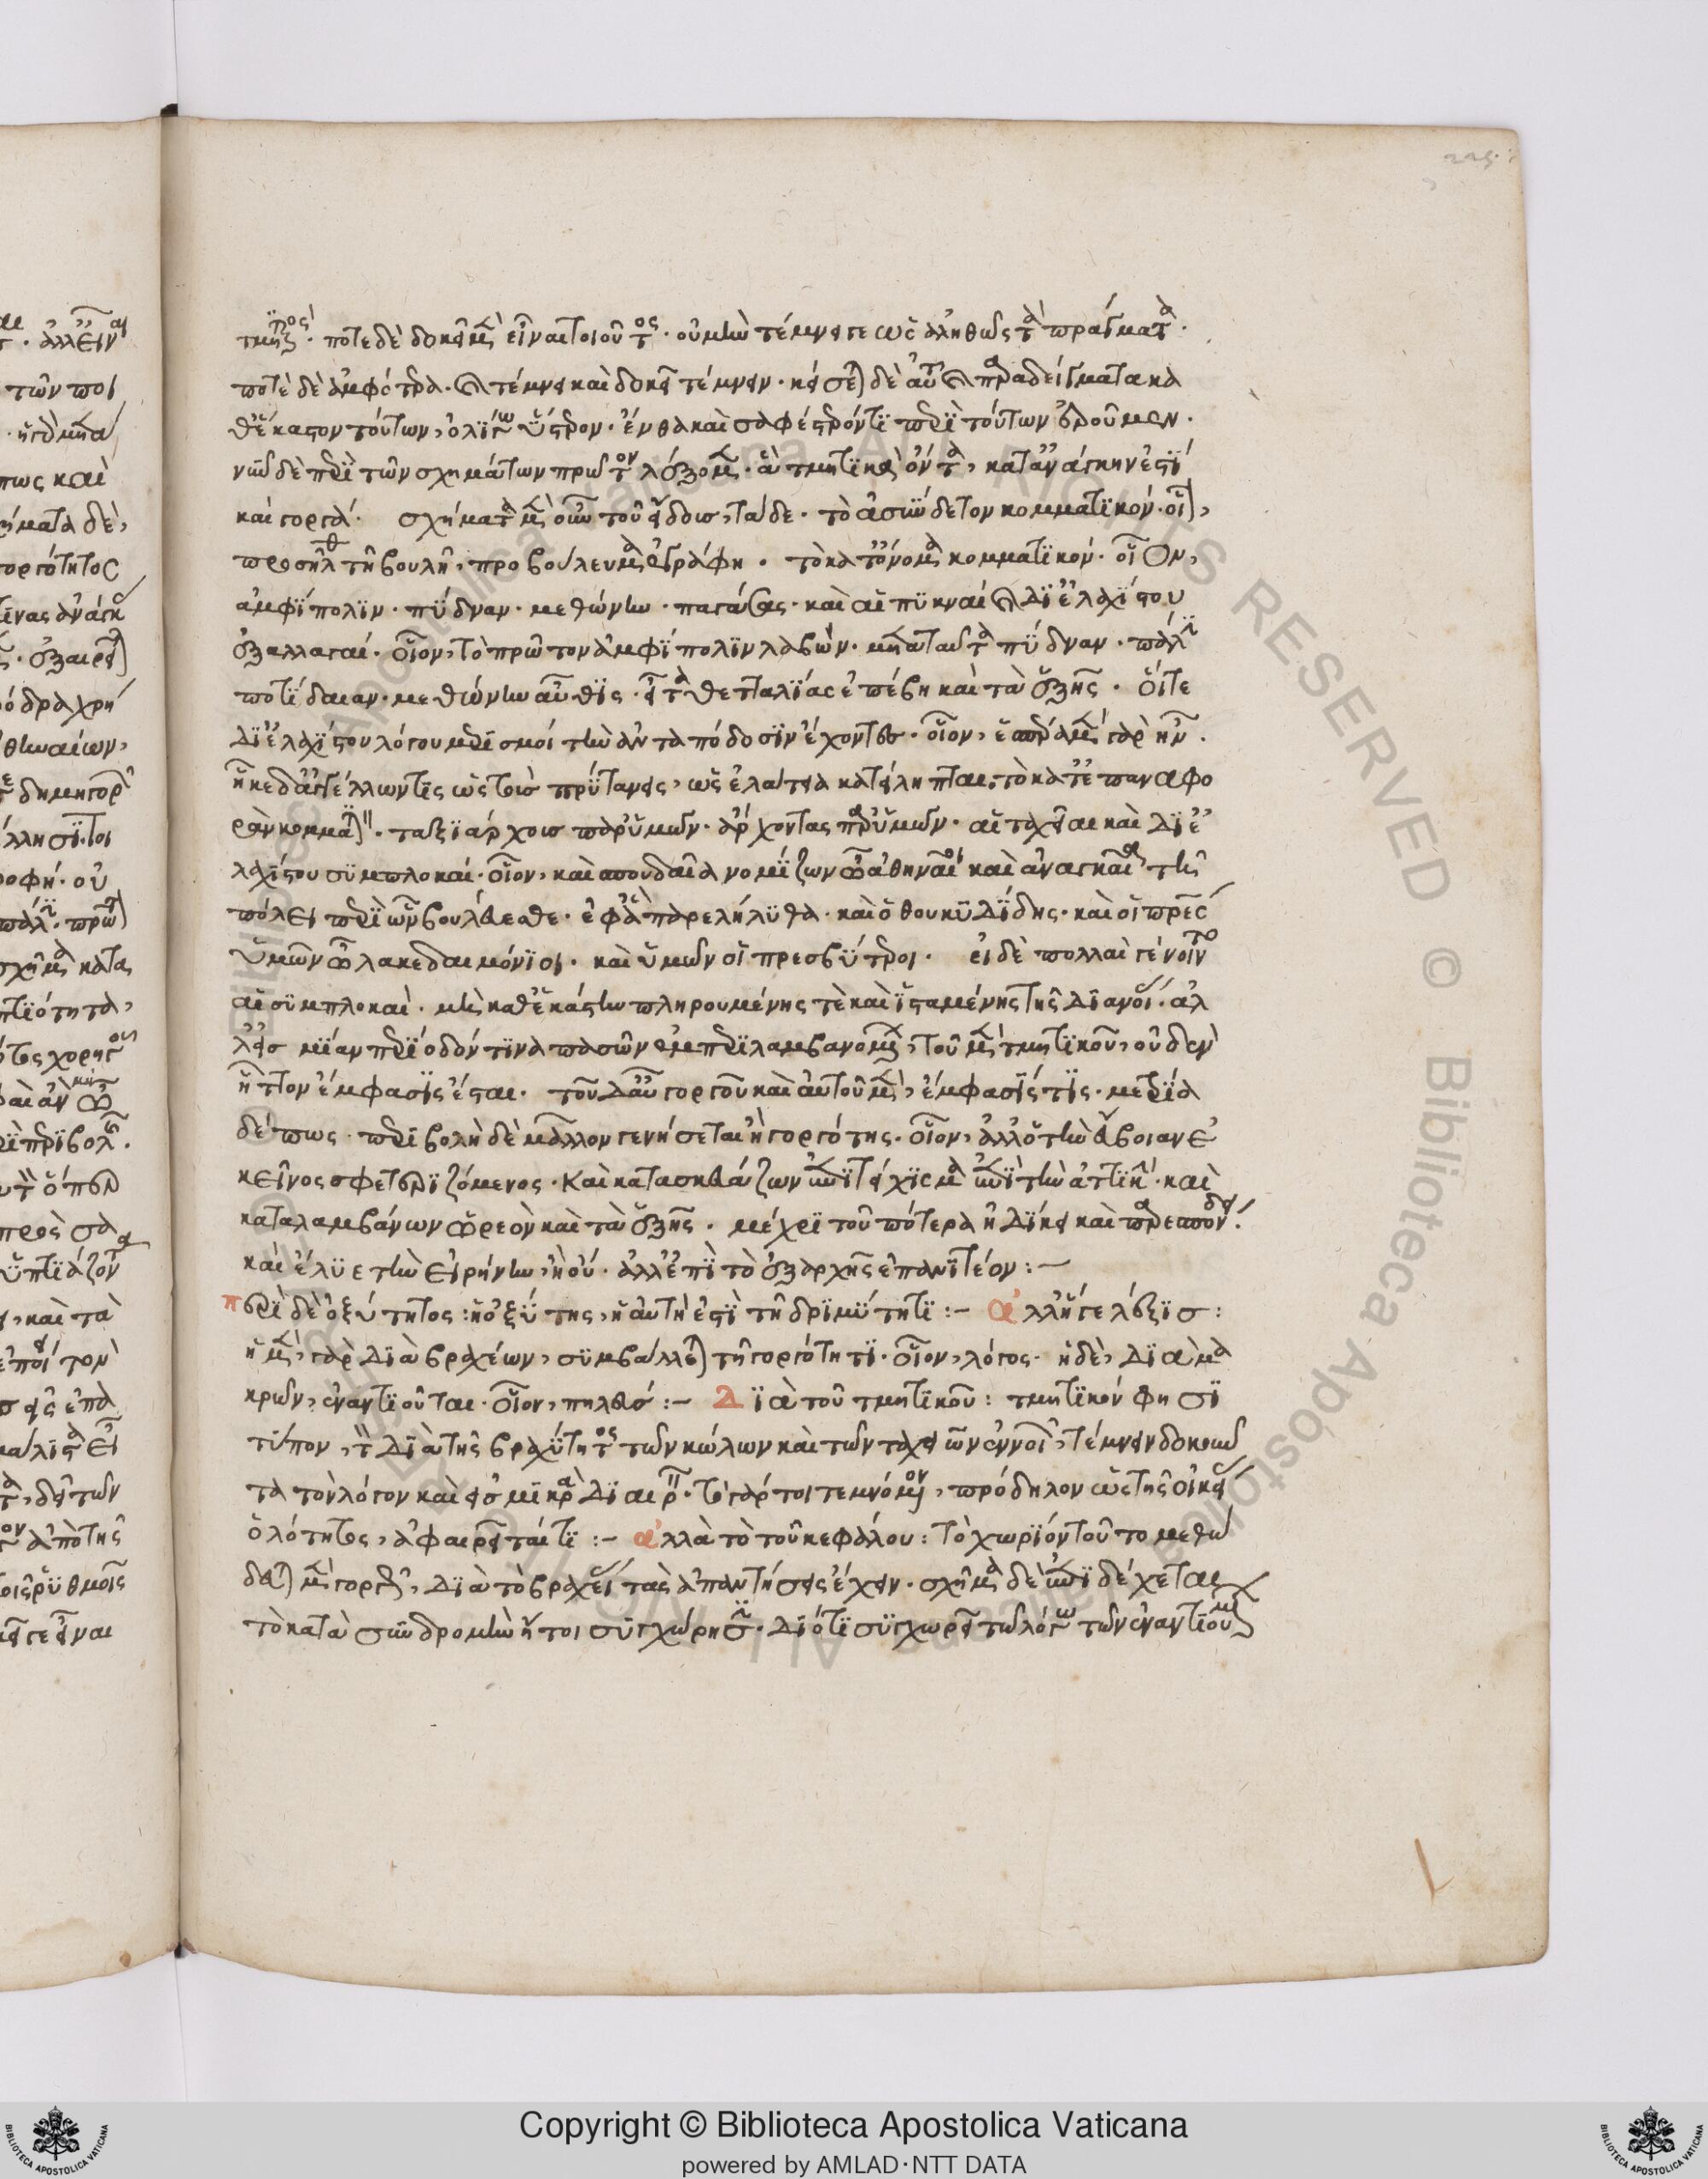 225
τμήσεως. ποτὲ δὲ δοκεῖ μὲν εἶναι τοιοῦτος. οὐ μὴν τέμνει γε ὡς ἀληθῶς τὰ πράγματα.
ποτὲ δὲ ἀμφότερα. καὶ τέμνει καὶ δοκεῖ τέμνειν. κείσεται δὲ αὐτῶν καὶ παραδείγματα κα
θ' ἕκαστον τούτων, ὀλίγω ὕστερον. ἔνθα καὶ σαφέστερόν τι περὶ τούτων ἐροῦμεν.
νῦν δὲ περὶ τῶν σχημάτων πρῶτον λέξομεν. ἃ τμητικὰ ὄντα, κατ' ἀνάγκην ἐστὶ
καὶ γοργά. σχήματα μὲν οὖν τοῦ εἴδους, τάδε. τὸ ἀσύνδετον κομματικόν. οἷον,
προσῆλθε τῇ βουλῇ, προβούλευμα ἐγράφη. τὸ κατ' ὄνομα κομματικόν. οἷον,
ἀμφίπολιν. πύδναν. μεθώνην. παγασάς. καὶ αἱ πυκναὶ καὶ δι' ἐλαχίστου
ἐξαλλαγαί. οἷον, τὸ πρῶτον ἀμφίπολιν λαβών. μετὰ ταῦτα πύδναν. πάλιν
ποτίδαιαν. μεθώνην αὖθις. εἶτα θετταλίας ἐπέβη καὶ τὰ ἑξῆς. οἵ τε
δι' ἐλαχίστου λόγου μερισμοὶ τὴν ἀνταπόδοσιν ἔχοντες. οἷον, ἑσπέρα μὲν γὰρ ἦν.
ἧκε δ' ἀγγέλλων τις ὡς τοὺς πρυτάνεις, ὡς ἐλάτεια κατείληπται. τὸ κατ' ἐπαναφο
ρὰν κομματικόν. ταξιάρχους παρ' ὑμῶν. ἄρχοντας παρ' ὑμῶν. αἱ ταχεῖαι καὶ δι' ἐ
λαχίστου συμπλοκαί. οἷον, καὶ σπουδαῖα νομίζων ὦ ἀθηναῖοι καὶ ἀναγκαῖα τῇ
πόλει περὶ ὧν βουλεύεσθε. ἐφ' ἃ παρελήλυθα. καὶ ὁ θουκυδίδης. καὶ οἱ πρέσβεις
ὑμῶν ὦ λακεδαιμόνιοι. καὶ ὑμῶν οἱ πρεσβύτεροι. εἰ δὲ πολλαὶ γένοιντο
αἱ συμπλοκαὶ. μὴ καθ' ἑκάστην πληρουμένης τὲ καὶ ἱσταμένης τῆς διανοίας. ἀλ
λ' εἰς μίαν περίοδόν τινα πασῶν ἐμπεριλαμβανομένων, τοῦ μὲν τμητικοῦ, οὐδὲν
ἧττον ἔμφασις ἔσται. τοῦ δ' αὖ γοργοῦ καὶ αὐτοῦ μὲν, ἔμφασίς τις. μετρία
δέ πως. περιβολὴ δὲ μᾶλλον γενήσεται ἢ γοργότης. οἷον, ἀλλ' ὁ τὴν εὔβοιαν ἐ
κεῖνος σφετεριζόμενος. καὶ κατασκευάζων ἐπιτείχισμα ἐπὶ τὴν ἀττικήν. καὶ
καταλαμβάνων ὠρεὸν καὶ τὰ ἑξῆς. μέχρι τοῦ πότερα ἠδίκει καὶ παρεσπόνδει.
καὶ ἔλυε τὴν εἰρήνην, ἢ οὔ. ἀλλ' ἐπὶ τὸ ἐξ ἀρχῆς ἐπανιτέον :—
περὶ δὲ ὀξύτητος : ἡ ὀξύτης, ἡ αὐτή ἐστι τῇ δριμύτητι :— ἀλλ' ἥ γε λέξις :
ἡ μὲν, γὰρ διὰ βραχέων, συμβάλλεται τῇ γοργότητι. οἷον, λόγος. ἡ δὲ, διὰ μα
κρῶν, ἐναντιοῦται. οἷον, πηλεύς :— διὰ τοῦ τμητικοῦ : τμητικόν φησι
τύπον, τὸν διὰ τῆς βραχύτητος τῶν κώλων καὶ τῶν ταχειῶν ἐννοιῶν, τέμνειν δοκοῦν
τα τὸν λόγον καὶ εἰς μικρὰ διαιρεῖν. τὸ γάρ τοι τεμνόμενον, πρόδηλον ὡς τῆς οἰκείας
ὁλότητος, ἀφαιρεῖταί τι :— ἀλλὰ τὸ τοῦ κεφάλου : τὸ χωρίον τοῦτο μεθω
δεύεται μὲν γοργῶς, διὰ τὸ βραχείας τὰς ἀπαντήσεις ἔχειν. σχῆμα δὲ ἐπιδέχεται
τὸ κατὰ συνδρομὴν ἤτοι συγχώρησιν. διότι συγχωρεῖ τῶ λόγω τῶν ἐναντιουμένων